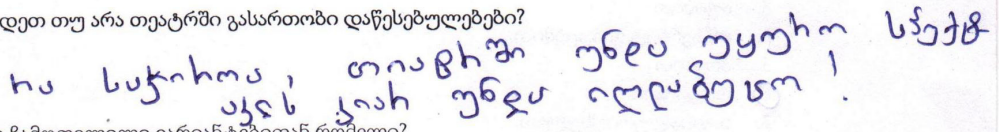 დეთ თუ არა თეატრში გასართობი დაწესებულებები?
რა საჭიროა, თიატრში უნდა უყურო სპექტ
აკლს კიარ უნდა ილლაბუცო!